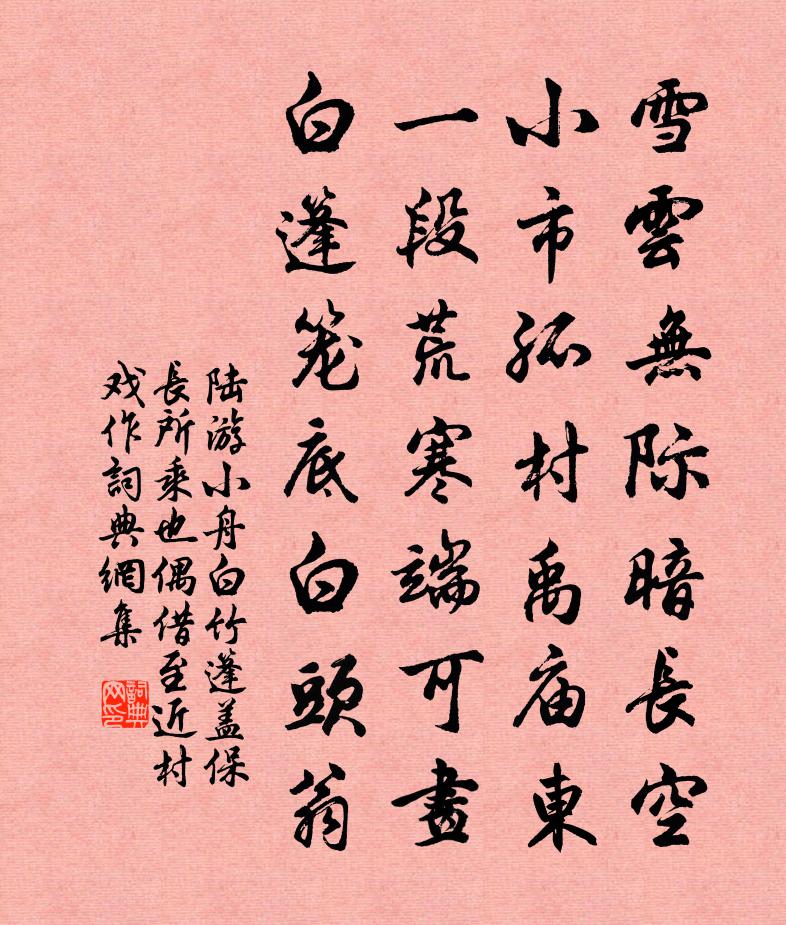 雪雲無际暗長空
小市孤村禹庙東
一段荒寒端可畫
白篷笼底白頭翁
陆游小舟白竹篷盖保
長所乘也偶借至近村
戏作詞典網集
詞典网印